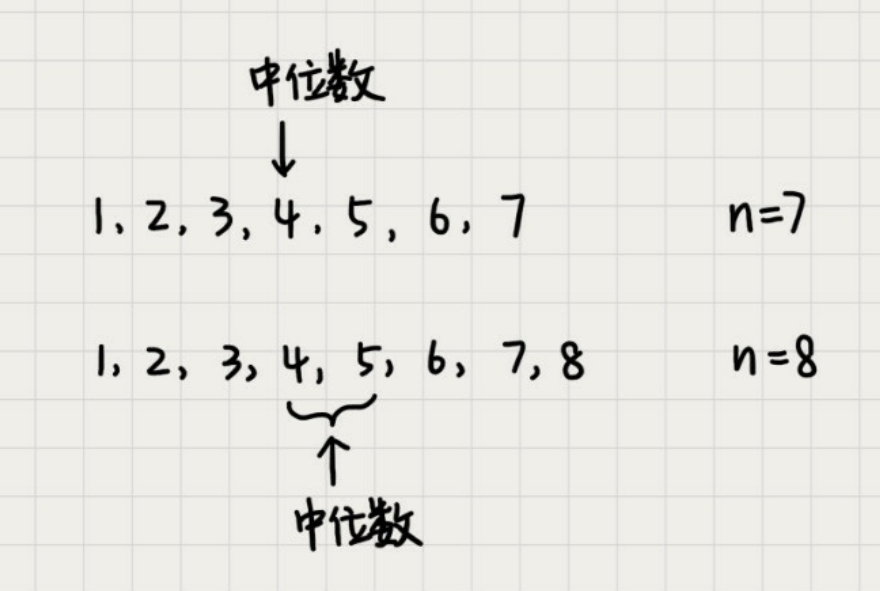 中位数
1、2、3,4、5,6,7 n=7
1,2,3,4,5,6,7,8 n=8
中位数